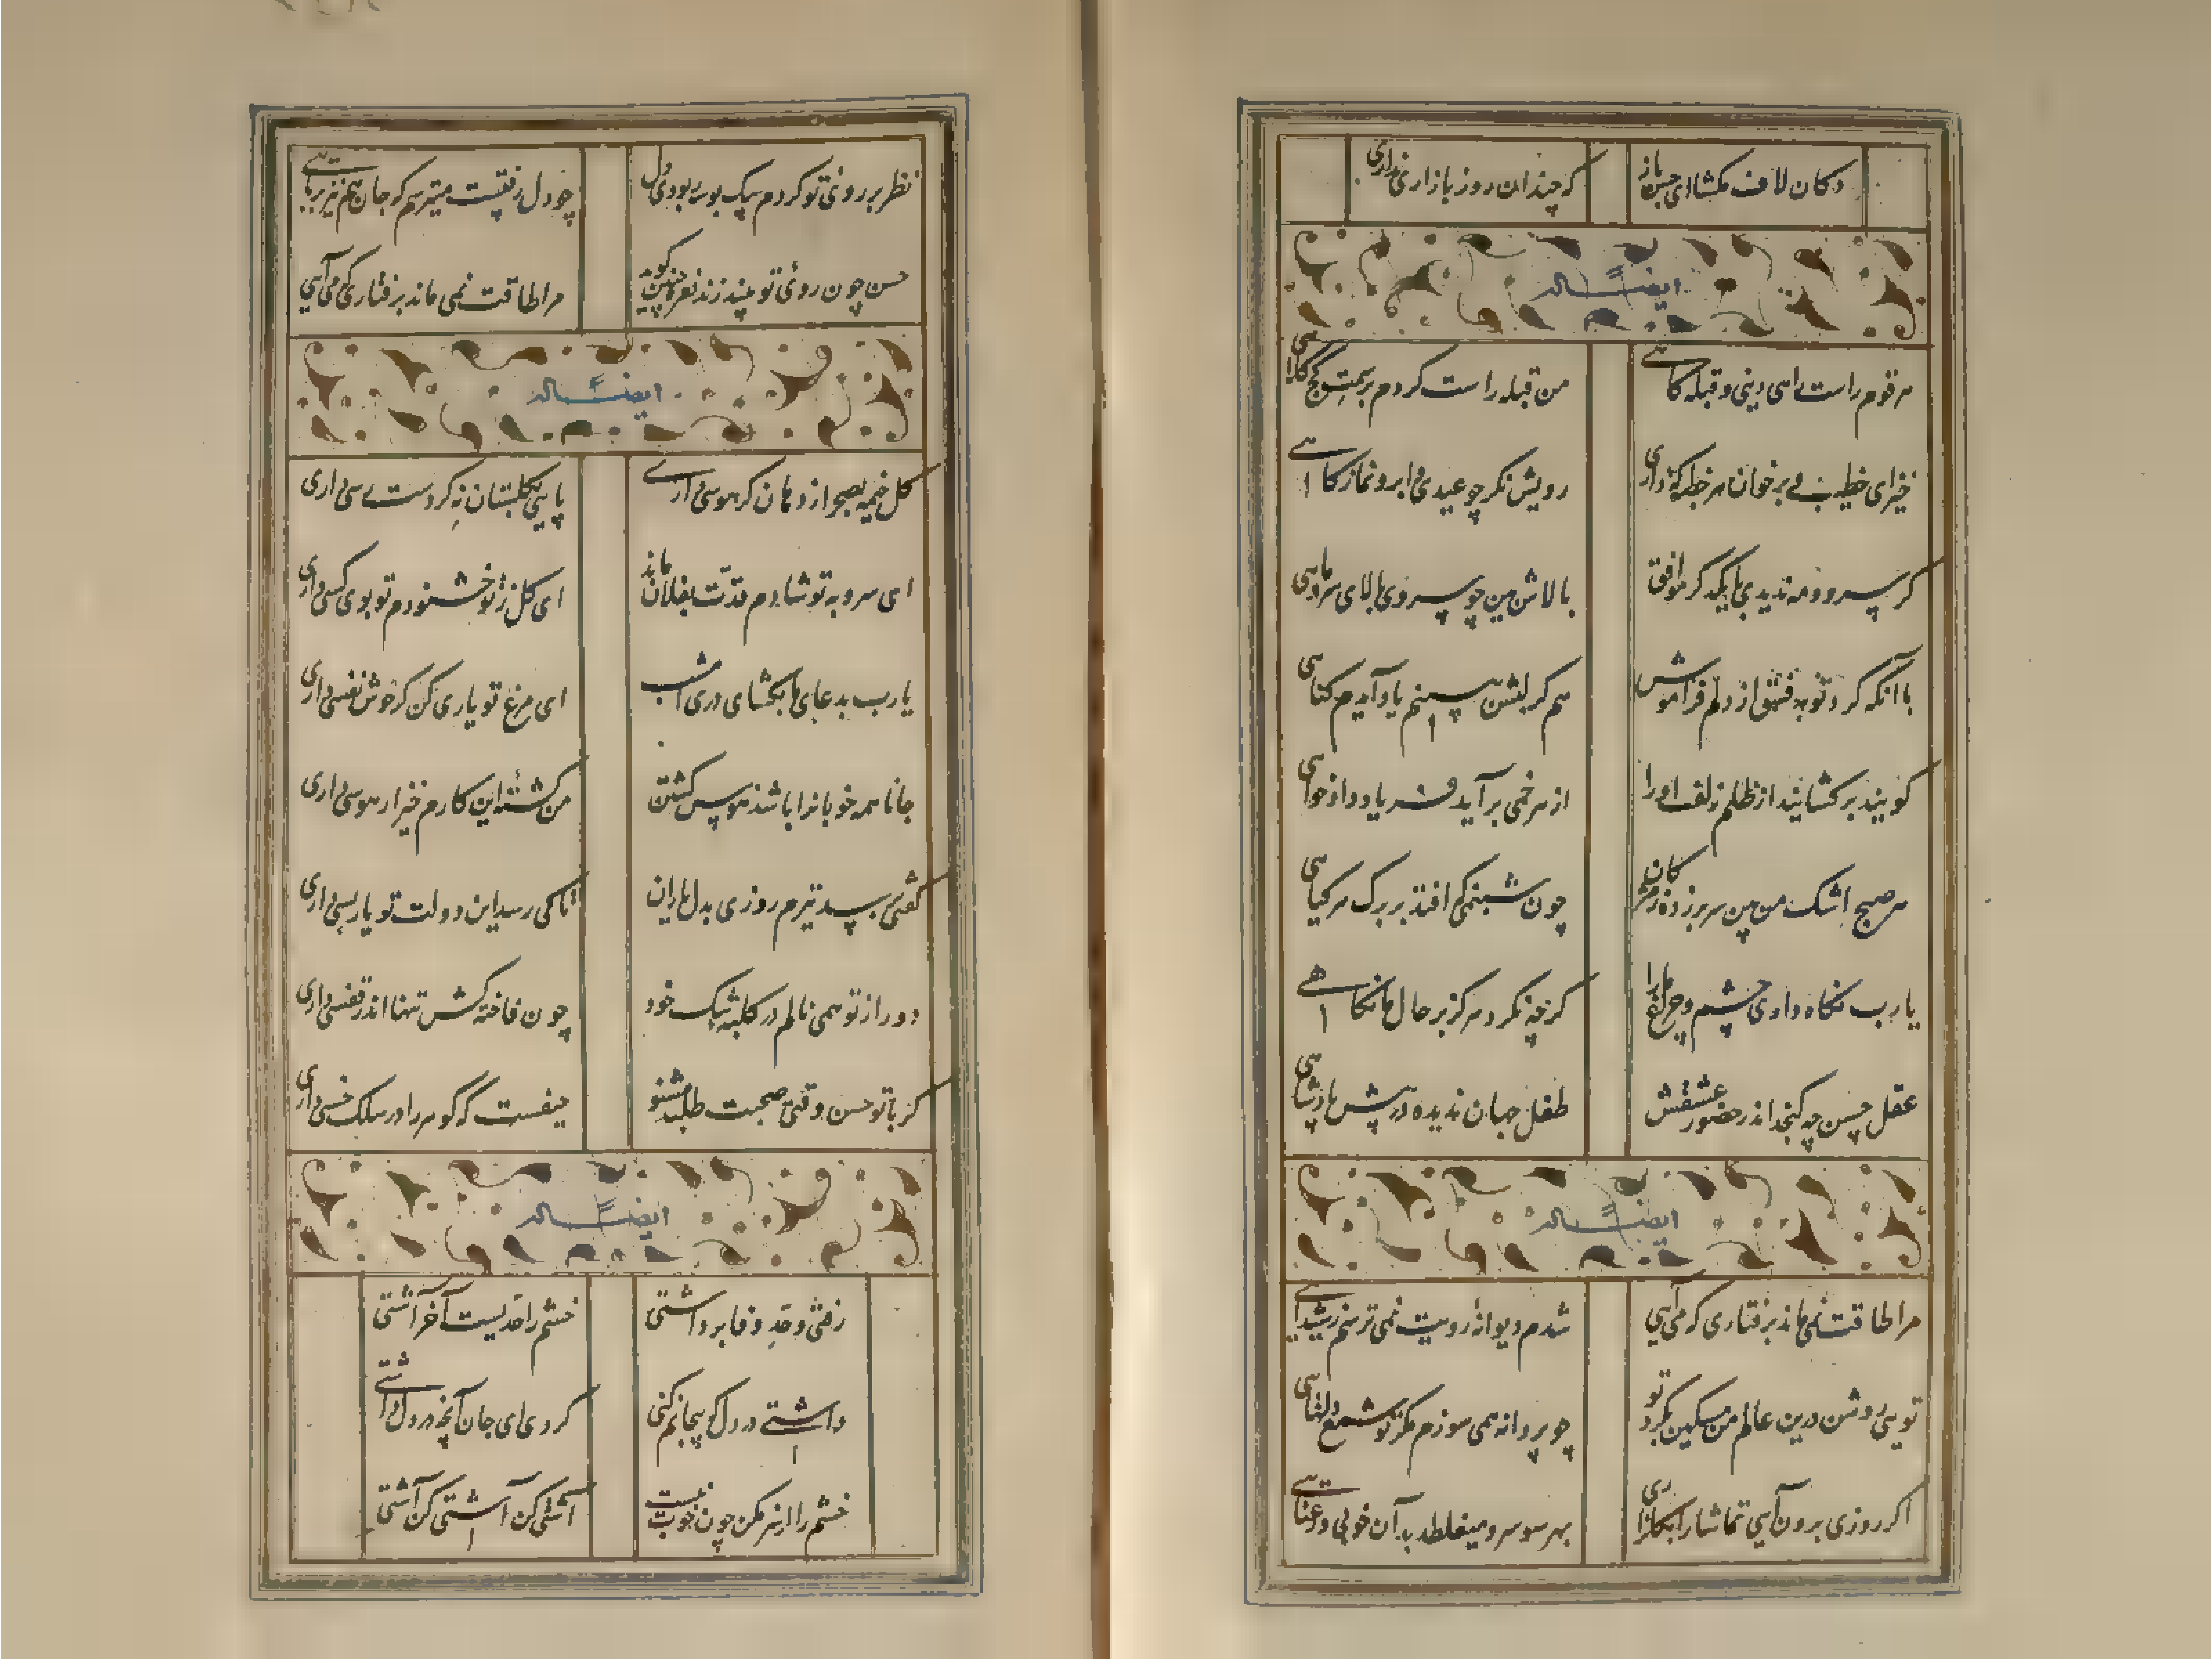 دکان لاف مکشا ای حسن باز
که چندان روز بازاری نداری
ایضاً له
هر قوم راست راهی دینی و قبله گاهی
من قبله راست کردم بر سمت کج کلاهی
خیز ای خطیب
رویش نگر چو عیدی ابرو نماز گاهی
گر سرو و مه ندیدی با یکدگر موافق
بالاش بین چو سروی بالای سرو ماهی
با آنکه کرد توبه عشق از دلم فراموش
هم گر لبش ببینم یاد آیدم گناهی
گویند بر گشایند از ظلم زلف او را
از هر خمی برآید فریاد دادخواهی
هر صبح اشک من بین سر بر زده ز مژگان
چون شبنمی که افتد بر برگ هر گیاهی
یارب نگاه داری چشم و چراغ ما را
گرچه نکرد هرگز بر حال ما نگاهی
عقل حسن چه گنجد اندر حضور عشقش
طفل جهان ندیده در پیش پادشاهی
ایضاً له
مرا طاقت نمی ماند برفتاری که می آیی
شدم دیوانه رویت نمی ترسم ز شیدایی
تویی روشن درین عالم من مسکین بگرد تو
چو پروانه همی سوزم مگر تو شمع دلهایی
اگر روزی برون آیی تماشا را بگلزاری
بهر سو سرو میغلطد بدان خوبی و رعنایی
نظر بر روی تو کردم بیک بوسه ربودی دل
چو دل رفتست میترسم که جان هم نیز بربایی
حسن چون روی تو بیند زند نعره همین گوید
مرا طاقت نمی ماند برفتاری که می آیی
ایضاً له
گل خیمه بصحرا زد مان گر هوسی داری
پایی بگلستان نه گر دست رسی داری
ای سرو به تو شادم قدت بفلان ماند
ای گل ز تو خشنودم تو بوی کسی داری
یارب بدعای ما بگشای دری امشب
ای مرغ تو یاری کن گر خوش نفسی داری
جانا همه خوبان را باشد هوس کشتن
من کشته این کارم خیز ار هوسی داری
گفتی برسد تیرم روزی بدل یاران
تا کی رسد این دولت تو یار بسی داری
دور از تو همی نالم در کلبه تنگ خود
چون فاخته کش تنها اندر قفسی داری
گر با تو حسن وقتی صحبت طلبد مشنو
حیفست که گوهر را در سلک خسی داری
ایضاً له
رفتی و حد وفا برداشتی
خشم را حدیست آخر آشتی
داشتی در دل که بیجانم کنی
کردی ای جان آنچه در دل داشتی
خشم را از سر مکن چون خوب نیست
آشتی کن آشتی کن آشتی